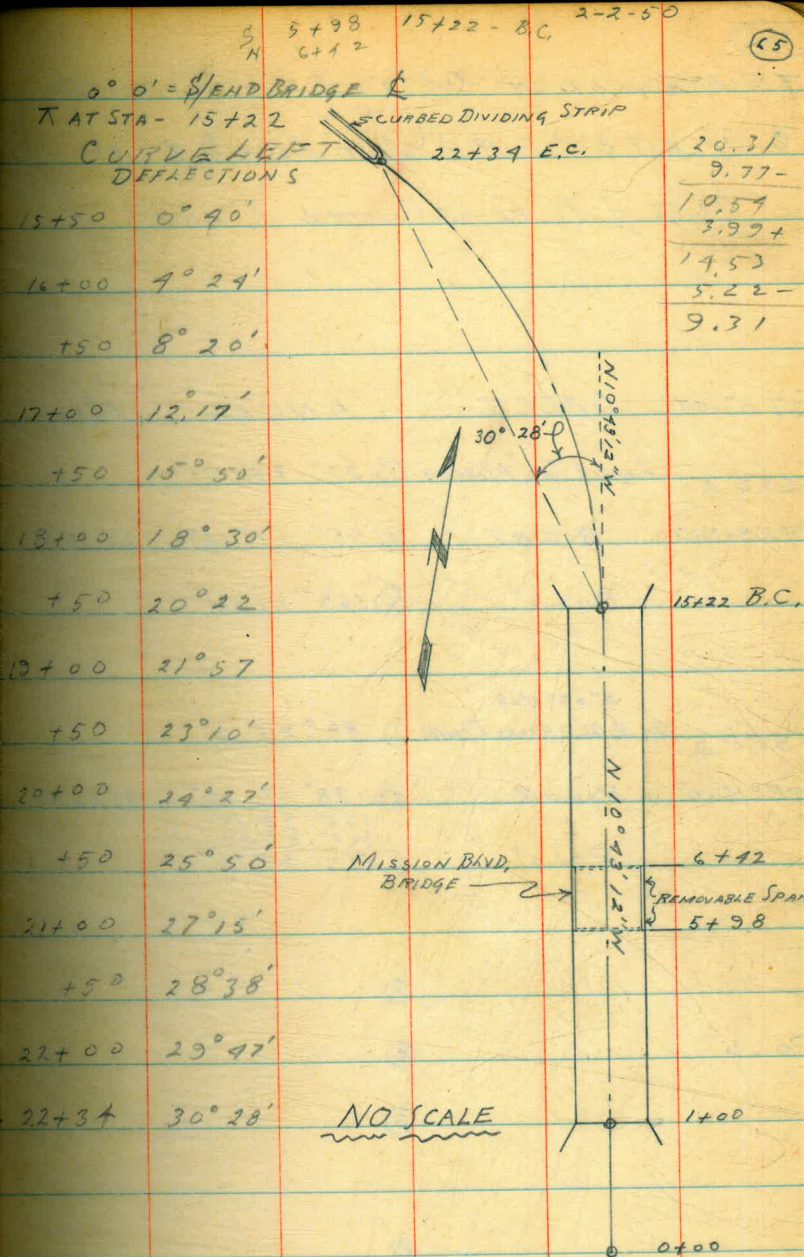 S 5+98 15+22 - B.C. 2-2-50
N 6+42
65
0° 0' = S/END BRIDGE ℄
⊼ AT STA - 15+22
CURBED DIVIDING STRIP
CURVE LEFT
22+34 E.C.
DEFLECTIONS
20.31
9.77-
10.54
3.99+
14.53
5.22-
9.31
15+50 0° 40'
16+00 4° 24'
+50 8° 20'
17+00 12° 17'
+50 15° 50'
18+00 18° 30'
+50 20° 22
19+00 21° 57
+50 23° 10'
20+00 24° 27'
+50 25° 50'
21+00 27° 15'
+50 28° 38'
22+00 29° 47'
22+34 30° 28'
30° 28'
N10°43'12"W
N
15+22 B.C.
N 10° 43' 12" W
MISSION BLVD.
BRIDGE
6+42
REMOVABLE SPAN
5+98
NO SCALE
1+00
0+00